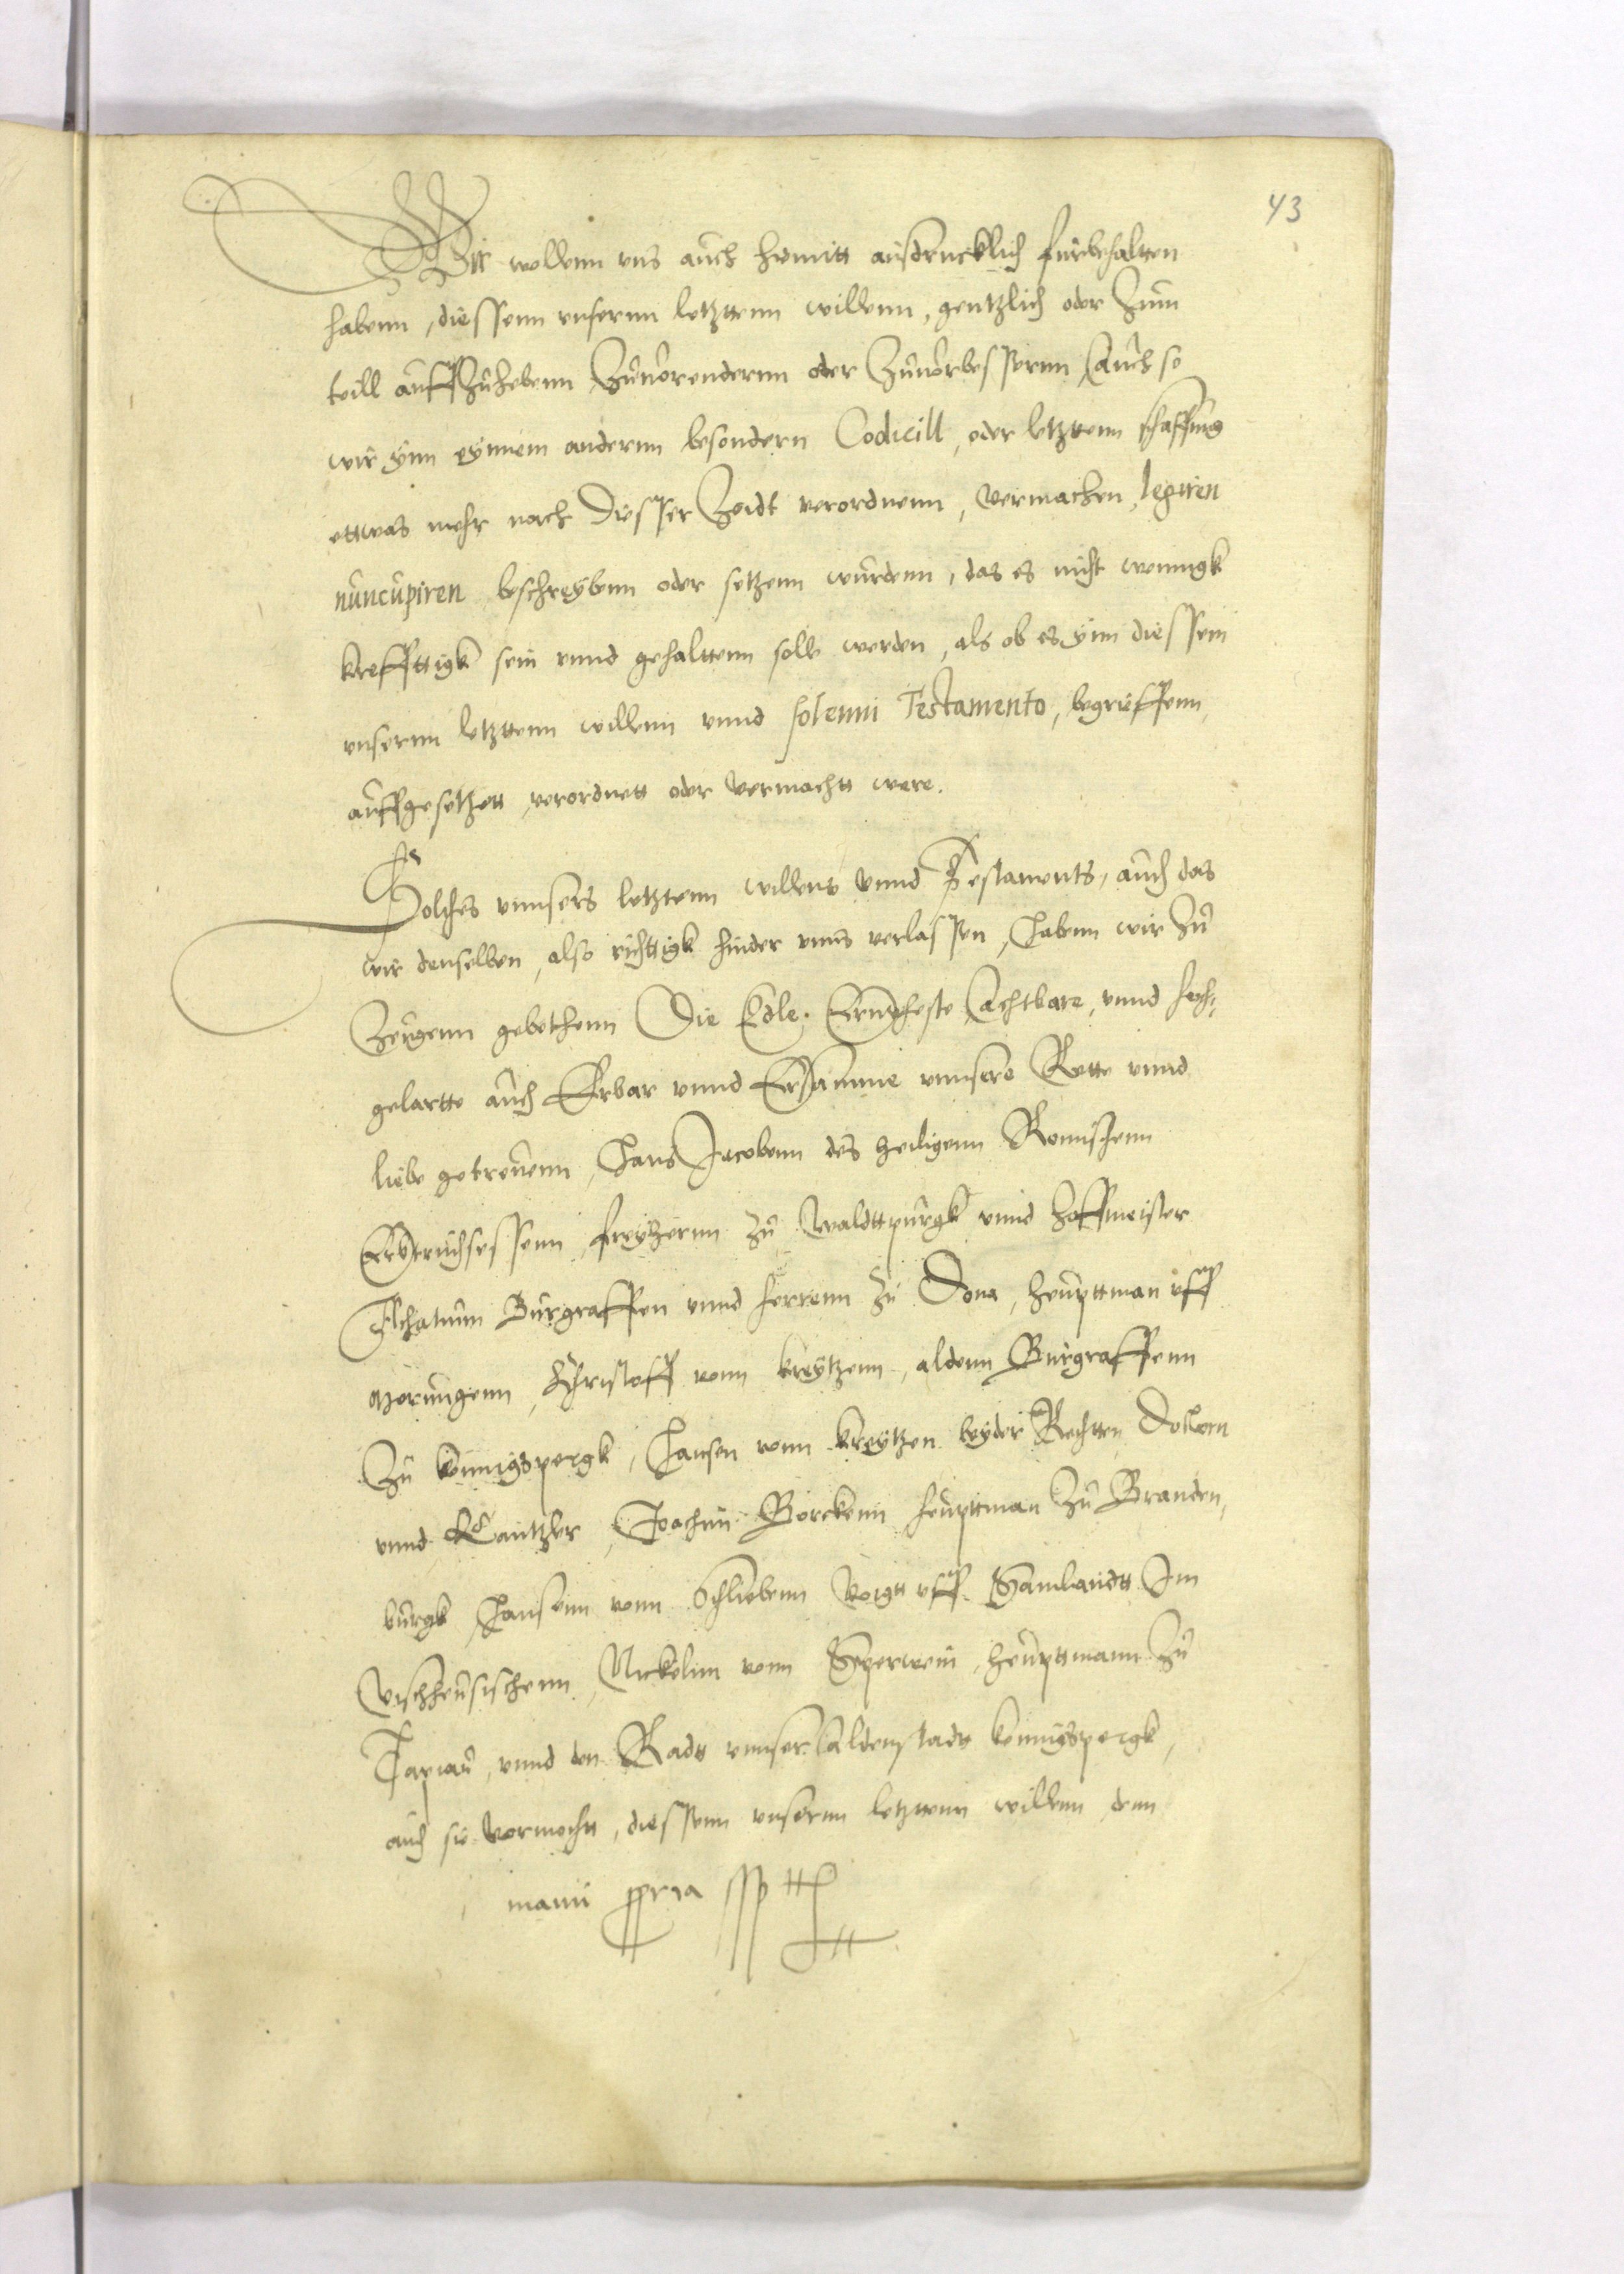 43
Wir wollenn uns auch hiemitt ausdrucklich furbehaltten
habenn, diessenn unsernn letzttenn willenn, gentzlich oder Zum
teill auffzuhebenn Zuuorendernn oder Zuuorbessernn, Auch so
wir ynn eynnem andernn besondern Codicill, oder letzttenn schaffung
ettwas mehr nach Diesser Zeidt verordnenn, Vermachen, legiren
nuncupiren beschreybenn oder setzenn wurdenn, das es nicht wenigk
krefftigk sein unnd gehalttenn solle werden, als ob es ynn diessem
unsernn letzttenn willenn unnd solenni Testamento, begrieffenn,
auffgesetzett, verordnett oder Vermachtt were.
Solches unnsers letztenn willens Unnd Testaments, auch das
wir denselben, also richttigk hinder unns verlassen, Habenn wir Zu
Zeugenn gebethenn Die Edle, Ernuheste, Achtbare, unnd hoch,
gelartte auch Erbar unnd Ersamme unnsere Rette unnd
liebe getreuenn, Hans Jacobenn des heiligenn Romischenn
Erbtruchsessenn freyhernn zu Waldttpurgk unnd Hoffmeister
Achatium Burgraffen unnd herrenn Zu Dona, heupttman uff
Morungenn, Christoff vonn kreytzenn, aldenn Burgraffenn
Zu konnigspergk, Hansen vonn kreytzen beyder Rechtten Doctorn
unnd Cantzler, Joachim Borckenn heupttman Zu Branden,
burgk, Hansenn vonn Schliebenn Voigtt uff Samlandtt Im
Vischheusischenn, Nickelnn vonn Sperwein, heupttmann Zu
Tapiau, unnd den Radtt unnser Aldenstadt konnigspergk,
auch sie Vormochtt, diessenn unsernn letzttenn willenn denn
manu ppria sspt